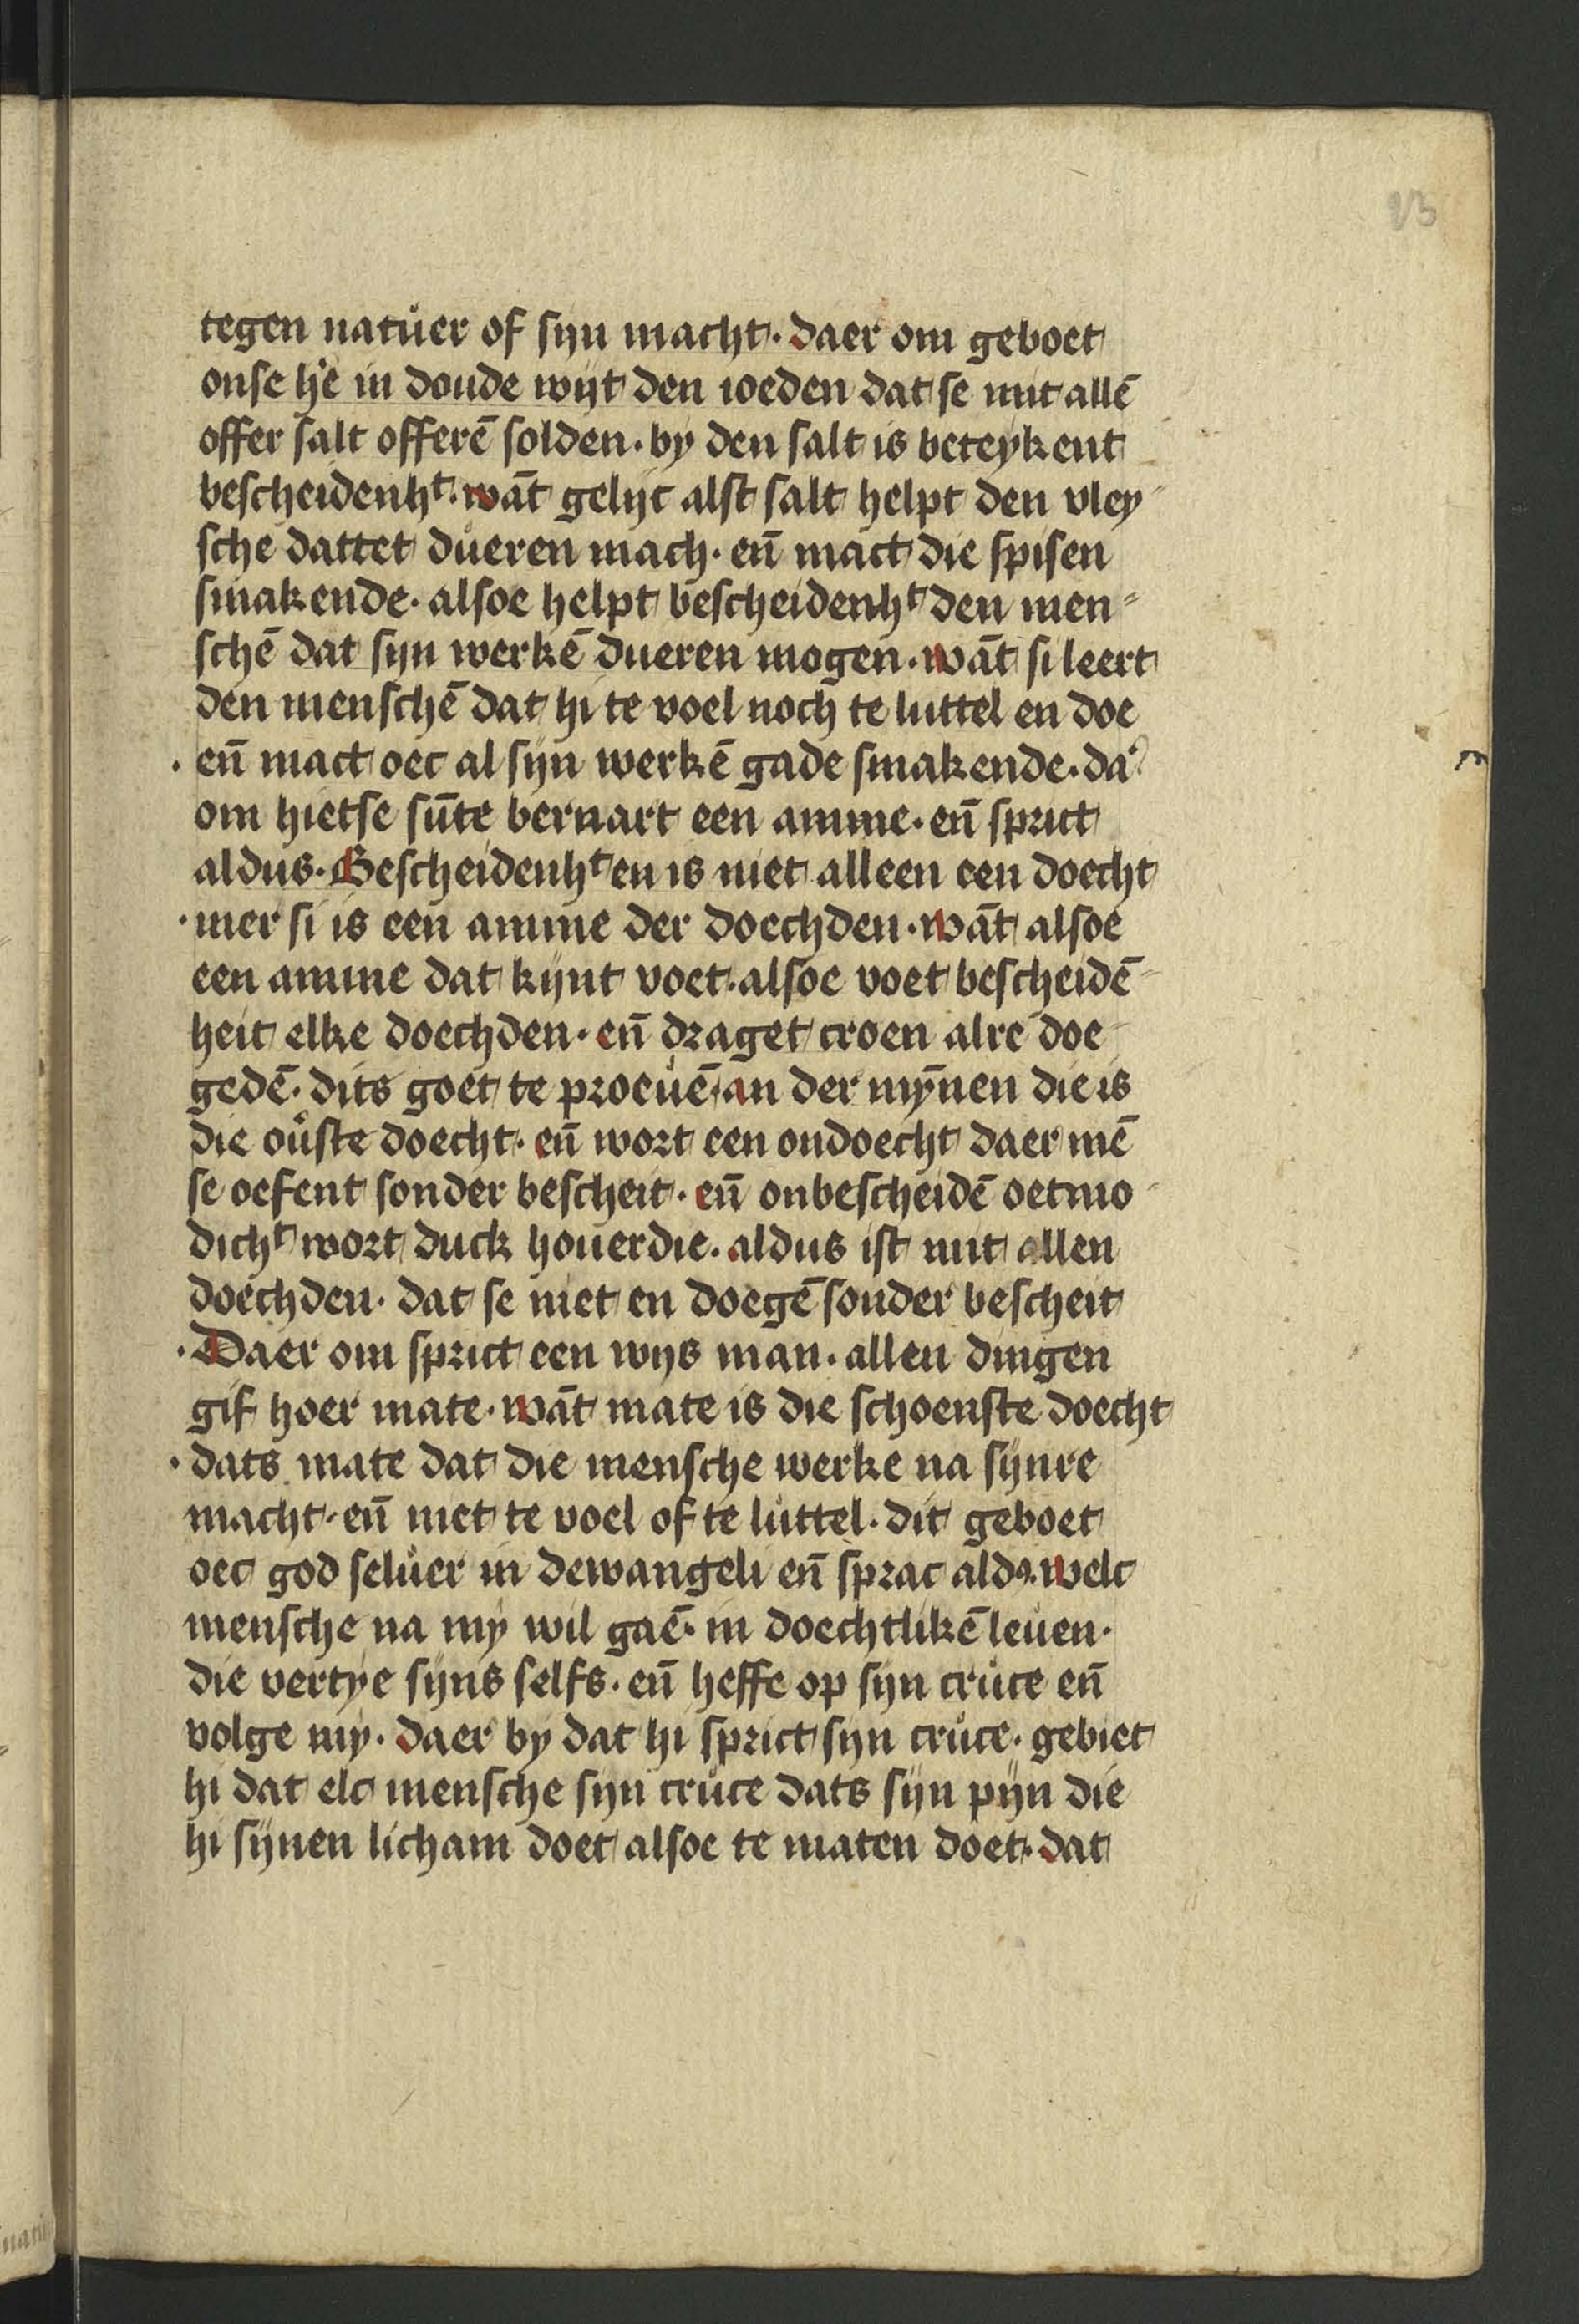 23
tegen natuͦer of sijn macht. daer om geboet
onse hē in doude wijt den ioeden dat se mit allē
offer salt offerē solden. by den salt is beteykent
bescheidenhᵗ. wāt gelijc alst salt helpt den vley-
sche dattet duͦeren mach. en̄ mact die spisen
smakende. alsoe helpt bescheidenhᵗ den men-
schē dat sijn werkē dueren mogen. wāt si leert
den menschē dat hi te voel noch te luttel en doe
en̄ mact oec al sijn werkē gade smakende. da'
om hietse sūte bernart een amme. en̄ sprict
aldus. Bescheidenhᵗ en is niet alleen een doecht
mer si is een amme der doechden. wāt alsoe
een amme dat kijnt voet. alsoe voet bescheidē-
heit elke doechden. en̄ draget croen alre doe-
gedē. dits goet te proeuē. an der mȳnen die is
die ou'ste doecht. en̄ wort een ondoecht daer mē
se oefent sonder bescheit. en̄ onbescheidē oetmo-
dichᵗ wort duck houerdie. aldus ist mit allen
doechden. dat se niet en doegē sonder bescheit
Daer om sprict een wijs man. allen dingen
gif hoer mate. wāt mate is die schoenste doecht
dats mate dat die mensche werke na sijnre
macht. en̄ niet te voel of te luͦttel. dit geboet
oec god seluͦer in dewangeli en̄ sprac aldꝯ. welc
mensche na my wil gaē. in doechtlikē leuͦen.
die vertye sijns selfs. en̄ heffe op sijn cruͦce en̄
volge my. daer by dat hi sprict sijn cruͦce. gebiet
hi dat elc mensche sijn cruͦce dats sijn pijn die
hi sijnen licham doet alsoe te maten doet. dat